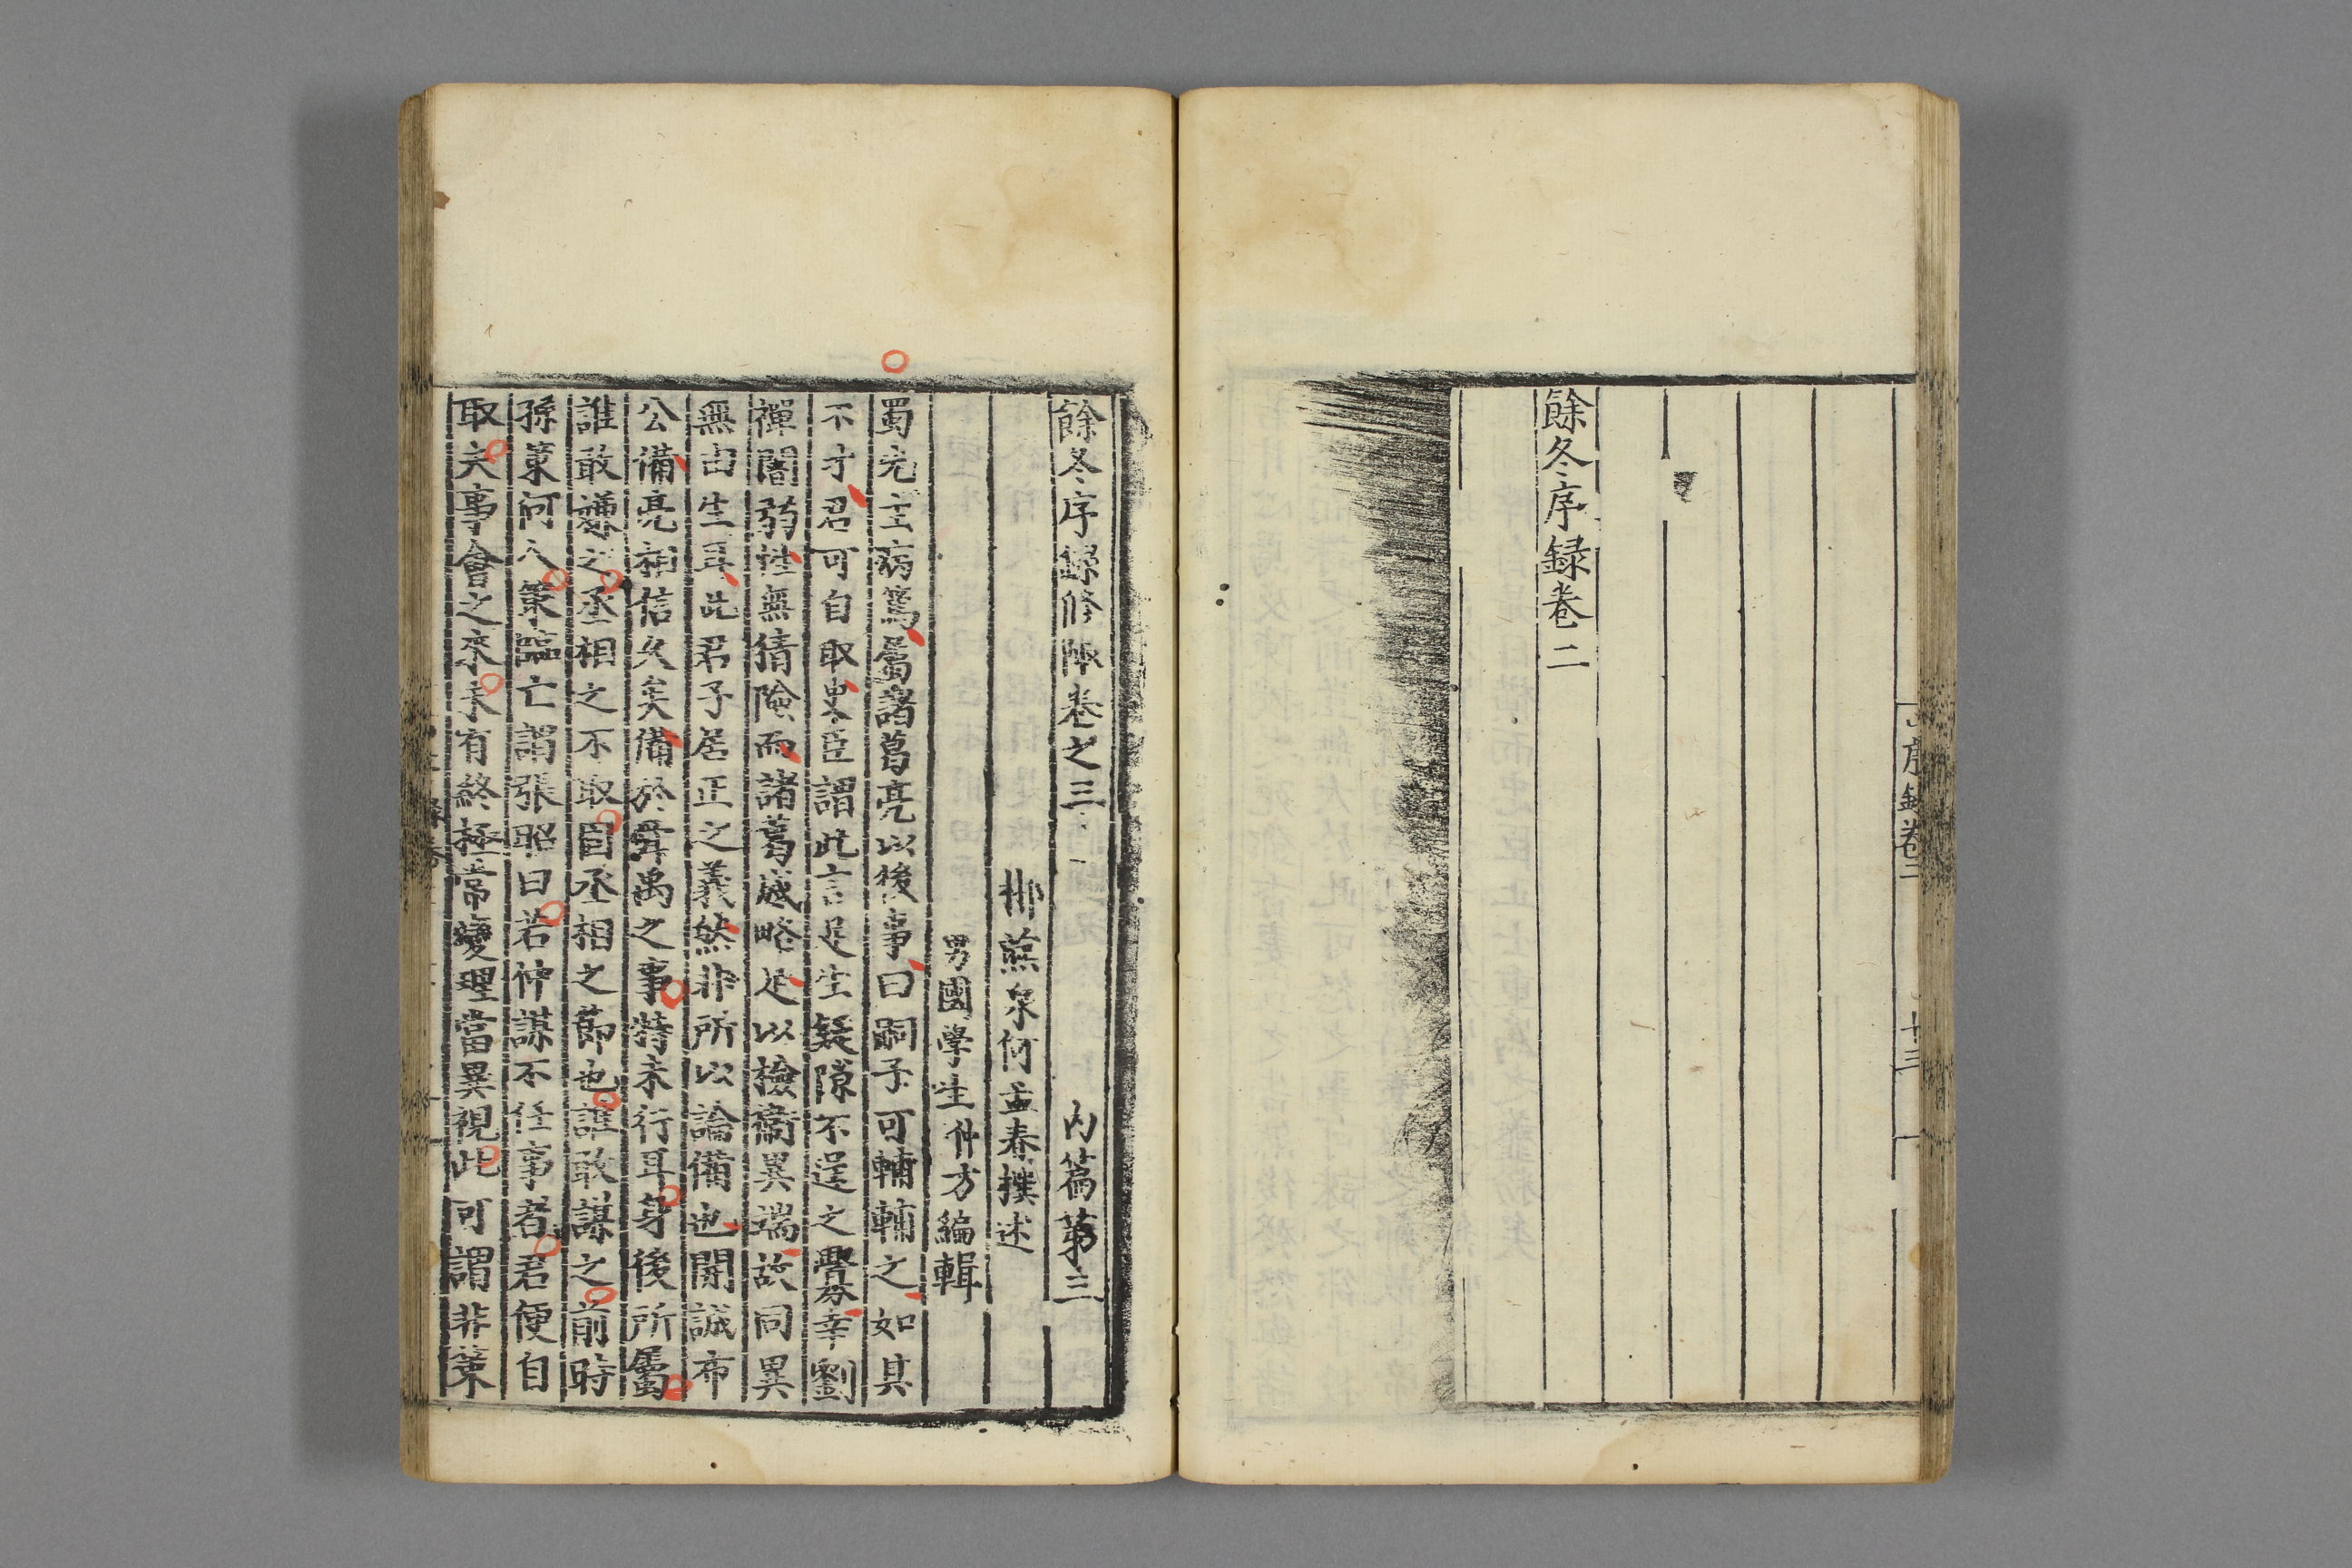 序錄卷二
十三
餘冬序録卷二
餘冬序録修陬卷之三
內篇第三
郴燕泉何孟春撰述
男國學生仲方編輯
蜀先主病篤屬諸葛亮以後事曰嗣子可輔輔之如其
不才君可自取史臣謂此言足生疑隙不逞之釁務幸劉
禪闇弱性無猜險而諸葛威略足以檢衞異端故同異
無由生耳此君子居正之義然非所以論備也開誠布
公備亮相信久矣備於舜禹之事特未行耳身後所屬
誰敢嫌之丞相之不取自丞相之節也誰敢謀之前時
孫策何人策臨亡謂張昭曰若仲謀不任事者君便自
取夫事會之來未有終極常變理當異視此可謂非策